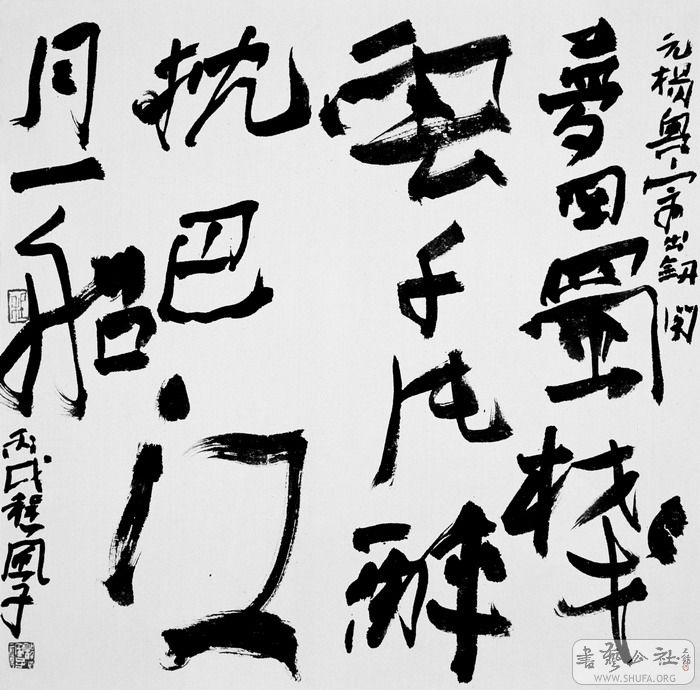 元楊出釼関
夢回蜀棧
雲千片醉
枕巴江
月一船
丙戌程風子
書藝公社
WWW.SHUFA.ORG